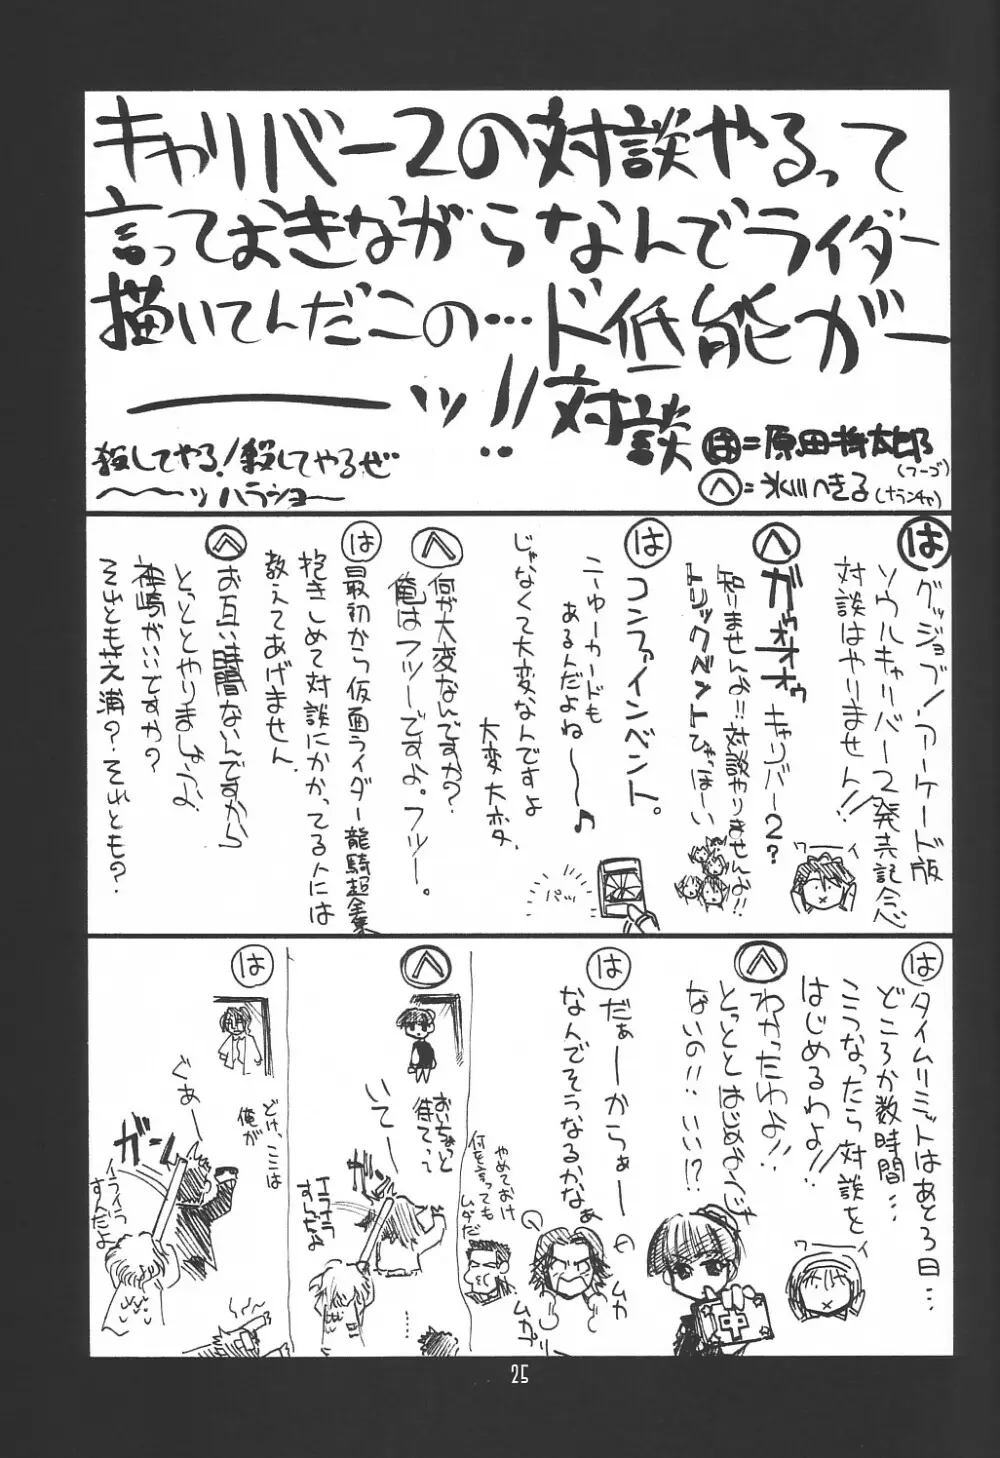 キャリバー2の対談やるって
言っておきながらなんでライダー
描いてんだこの…ド低能がー
ーーーッ!!対談
殺してやる!殺してやるぜ
〜〜〜ッハラショー
は=原田将太郎
(フーゴ)
へ=氷川へきる(ナランチャ)
は
グッジョブ!アーケード版
ソウルキャリバー2発売記念
対談はやりません!!
ワーイ
へ
ガゥオオオゥキャリバー2?
知りませんよ!!対談やりませんよ!!
トリックベントびゃっほーい
は
コンファインベント。
ニューカードも
あるんだよね〜〜♪
じゃなくて大変なんですよ
大変大変
パッ
へ
何が大変なんですか?
俺はフツーですよ。フツー。
は
最初から仮面ライダー龍騎超全集
抱きしめて対談にかかってる人には
教えてあげません
へ
お互い時間ないんですから
とっととやりましょうよ
神崎がいいですか?
それとも芝浦?それとも?
は
タイムリミットはあと3日…
どころか数時間…
こうなったら対談を
はじめるわよ!!
ワーイ
へ
わかったわよ!!
とっととはじめよイイジャ
ないの!!いい!?
中
は
だぁーからぁー
なんでそうなるかなぁ
ムカ
ムカッ
やめておけ
何を言っても
ムダだ
へ
おいちょっと
待てって
いてー
イライラ
すんなよ
は
どけ、ここは
俺が
ぐぁー
ガーン
イライラ
すんだよ
25